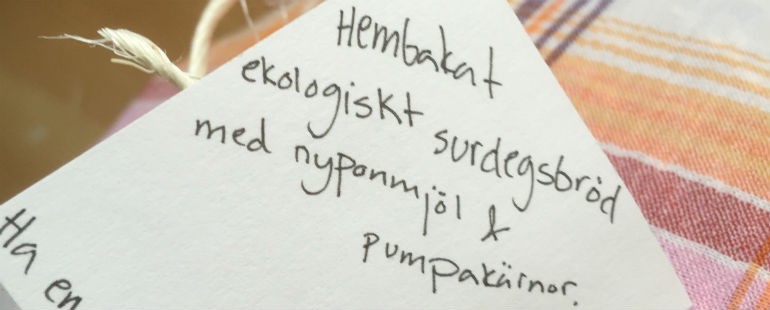 Hembakat
ekologiskt surdegsbröd
med nyponmjöl &
pumpakärnor.
Ha en